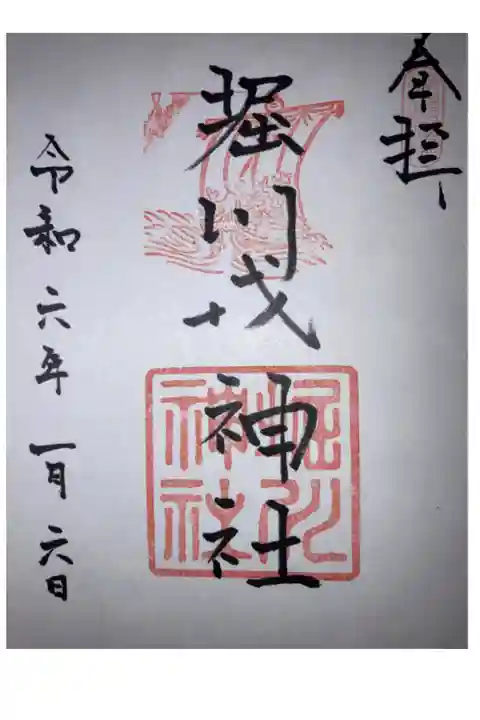 奉拝
堀川戎神社
令和六年一月六日